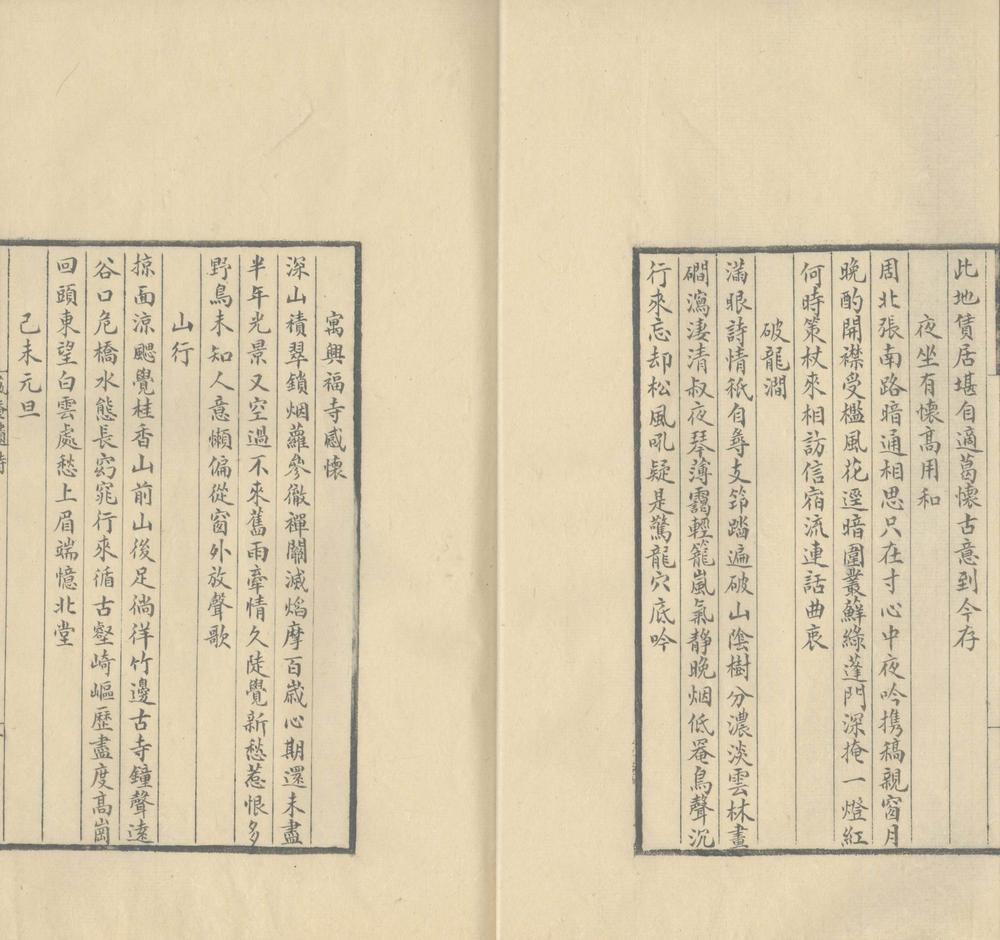 此地賃居堪自適葛懷古意到今存
夜坐有懷高用和
周北張南路暗通相思只在寸心中夜吟携稿親窗月
晚酌開襟受檻風花逕暗圍叢蘚綠蓬門深掩一燈紅
何時策杖來相訪信宿流連話曲衷
破龍澗
滿眼詩情祇自尋支筇踏遍破山陰樹分濃淡雲林畫
磵瀉淒清叔夜琴薄靄輕籠嵐氣靜晚烟低罨鳥聲沉
行來忘却松風吼疑是驚龍穴底吟
寓興福寺感懷
深山積翠鎖烟蘿參徹禪關滅焰摩百歲心期還未盡
半年光景又空過不來舊雨牽情久陡覺新愁惹恨多
野鳥未知人意懶偏從窗外放聲歌
山行
掠面涼颸覺桂香山前山後足徜徉竹邊古寺鐘聲遠
谷口危橋水態長窈窕行來循古壑崎嶇歷盡度高崗
回頭東望白雲處愁上眉端憶北堂
己未元旦